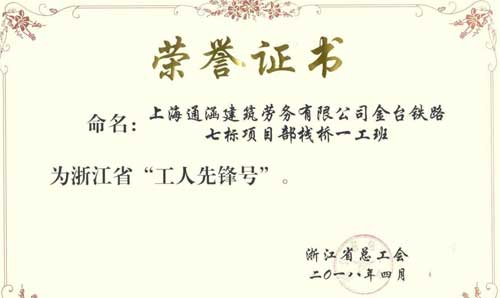 荣誉证书
命名：上海通涵建筑劳务有限公司金台铁路
七标项目部栈桥一工班
为浙江省“工人先锋号”。
浙江省总工会
二〇一八年四月